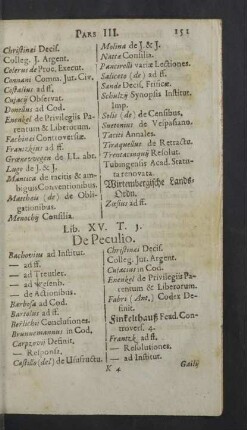 PARS III. 151
Christinei Decis.
Colleg. J. Argent.
Colerus de Proc. Execut.
Connani Comm. Jur. Civ.
Costalius ad ff.
Cujacii Observat.
Donellus ad Cod.
Evenkel de Privilegiis Parentum & Liberorum.
Fachinei Controversiæ.
Frantzkius ad ff.
Grœnewegen de LL. abr.
Lugo de J. & J.
Mantica de tacitis & ambiguis Conventionibus.
Matthæis (de) de Obligationibus.
Menochii Consilia.
Molina de J. & J.
Nattæ Consilia.
Pancirolli variæ Lectiones.
Saliceto (de) ad ff.
Sande Decis. Frisicæ.
Schulzii Synopsis Institut. Imp.
Solis (de) de Censibus.
Suetonius de Vespasiano.
Taciti Annales.
Tiraquellus de Retractu.
Trentacinquii Resolut.
Tubingensis Acad. Statuta renovata.
Würtembergische Lands-Ordn.
Zasius ad ff.
Lib. XV. T. 1.
De Peculio.
Bachovius ad Institut.
— ad ff.
— ad Treutler.
— ad Wesenb.
— de Actionibus.
Barbosa ad Cod.
Bartolus ad ff.
Berlichii Conclusiones.
Brunnemannus in Cod.
Carpzovii Definit.
— Responsa.
Castillo (del) de Usufructu.
Christinei Decis.
Colleg. Jur. Argent.
Cujacius in Cod.
Evenkel de Privilegiis Parentum & Liberorum.
Fabri (Ant.) Codex Definit.
Finkelthauß Feud. Controvers. 4.
Frantzk. ad ff.
— Resolutiones.
— ad Institut.
K 4 Gailii